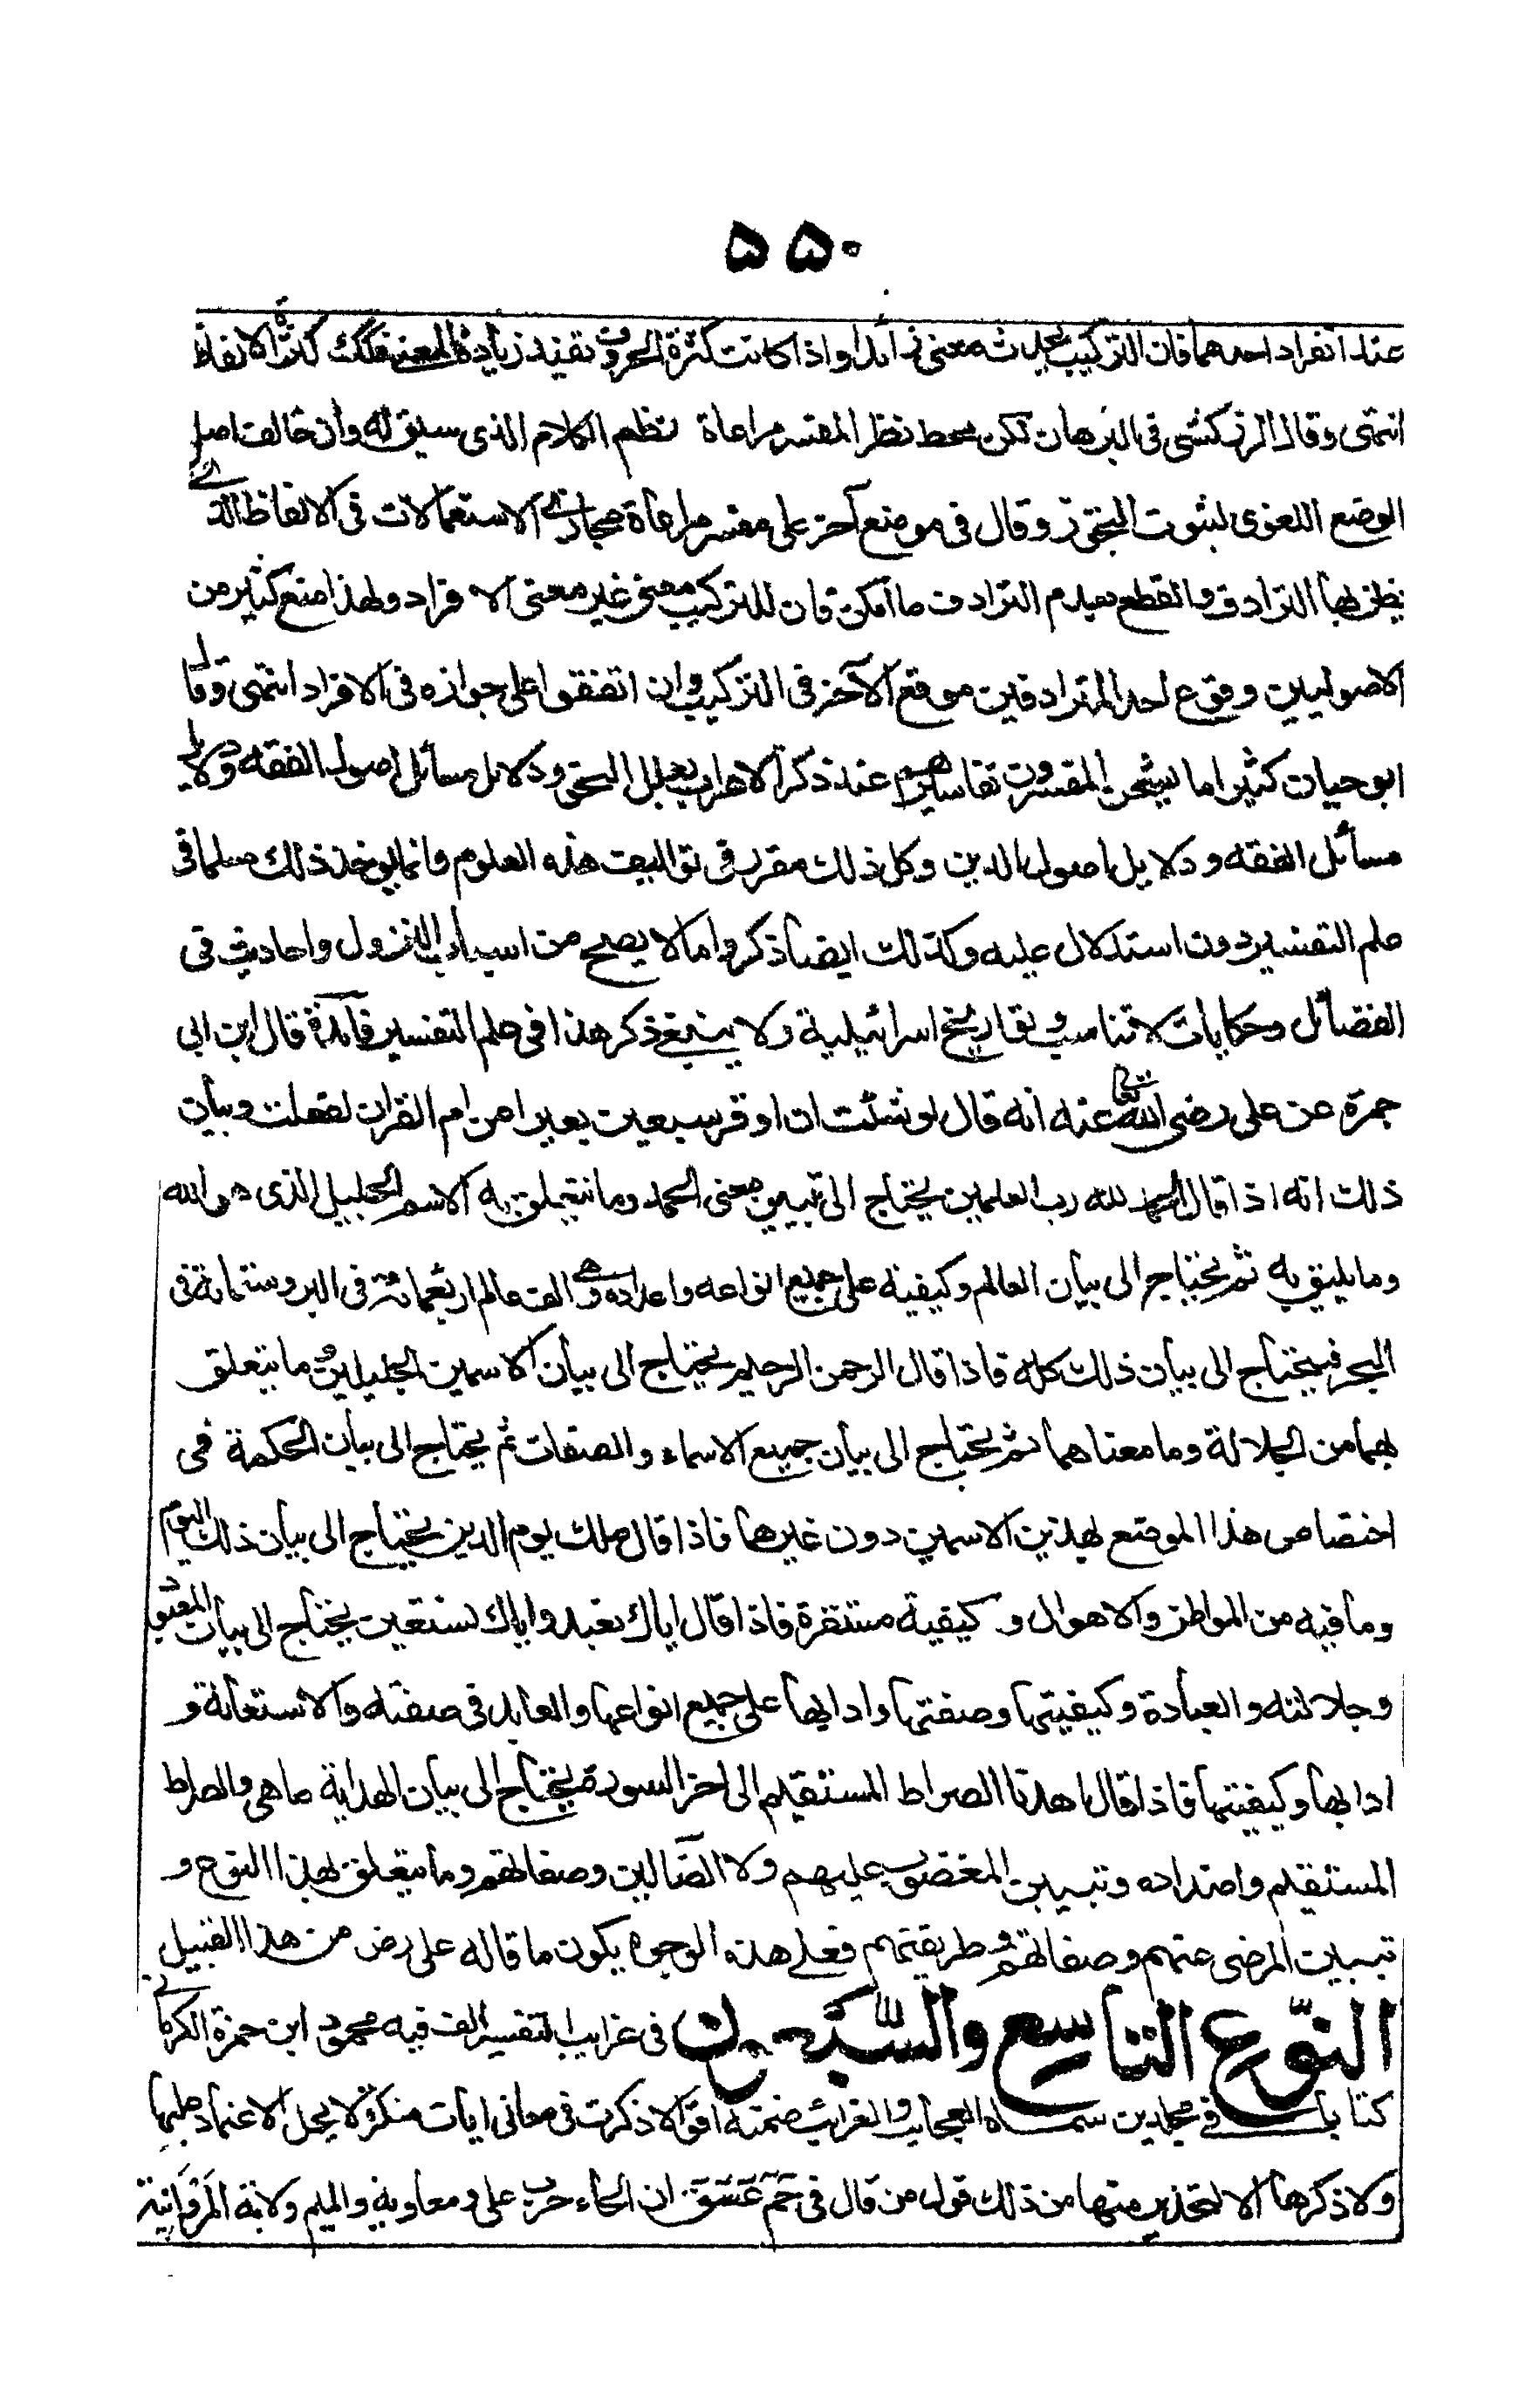 ۵۵۰
عند انفراد احدهما فان التركيب يحدث معنى زائدا واذا كانت كثرة الحروف تفيد زيادة المعنى فكذلك كثرة الالفاظ
انتهى وقال الزركشى فى البرهان ليكن محط نظر المفسر مراعاة نظم الكلام الذى سيق له وان خالف اصل
الوضع اللغوى لثبوت التجوز وقال فى موضع آخر على مفسر مراعاة مجازى الاستعمالات فى الالفاظ التى
يظن بها الترادف والقطع بعدم الترادف ما امكن فان للتركيب معنى غير معنى الافراد ولهذا منع كثير من
الاصوليين وقوع احد المترادفين موقع الآخر فى التركيب وان اتفقوا على جوازه فى الافراد انتهى وقال
ابو حيان كثيرا ما يشحن المفسرون تفاسيرهم عند ذكر الاعراب بعلل النحو ودلايل مسائل اصول الفقه ودلايل
مسائل الفقه ودلايل اصول الدين وكل ذلك مقرر فى تواليف هذه العلوم وانما يوخذ ذلك مسلما فى
علم التفسير دون استدلال عليه وكذلك ايضا ذكروا ما لا يصح من اسباب النزول واحاديث فى
الفضائل وحكايات لا تناسب وتقاريخ اسرائيلية ولا ينبغى ذكر هذا فى علم التفسير فائدة قال ابن ابى
جمرة عن على رضى الله تعالى عنه انه قال لو شئت ان اوقر سبعين بعيرا من ام القران لفعلت وبيان
ذلك انه اذا قال الحمد لله رب العلمين يحتاج الى تبيين معنى الحمد وما يتعلق به الاسم الجليل الذى هو الله
وما يليق به ثم يحتاج الى بيان العالم وكيفيته على جميع انواعه واعداده وهى الف عالم اربعمائة فى البر وستمائة فى
البحر فيحتاج الى بيان ذلك كله فاذا قال الرحمن الرحيم يحتاج الى بيان الاسمين الجليلين وما يتعلق
بهما من الجلالة وما معناهما ثم يحتاج الى بيان جميع الاسماء والصفات ثم يحتاج الى بيان الحكمة فى
اختصاص هذا الموضع بهذين الاسمين دون غيرهما فاذا قال ملك يوم الدين يحتاج الى بيان ذلك اليوم
وما فيه من المواطن والاهوال و كيفية مستقرة فاذا قال اياك نعبد واياك نستعين يحتاج الى بيان المعبود
وجلالته والعبادة وكيفيتها وصفتها وادابها على جميع انواعها والعابد فى صفته والاستعانة و
ادابها وكيفيتها فاذا قال اهدنا الصراط المستقيم الى اخر السورة يحتاج الى بيان الهداية ما هى والصراط
المستقيم واضداده وتبيين المغضوب عليهم ولا الضالين وصفاتهم وما يتعلق بهذا النوع و
تبيين المرضى عنهم وصفاتهم وطريقتهم فعلى هذه الوجوه يكون ما قاله على رض من هذا القبيل
النوع التاسع والسبعون فى غرايب التفسير الف فيه محمود ابن حمزة الكرمانى
كتابا فى مجلدين سماه العجايب والغرائب ضمنه اقوالا ذكرت فى معانى ايات منكرة لا يحل الاعتماد عليها
ولا ذكرها الا لتحذير منها من ذلك قول من قال فى حم عسق ان الحاء حرب على ومعاوية والميم ولاية المروانية